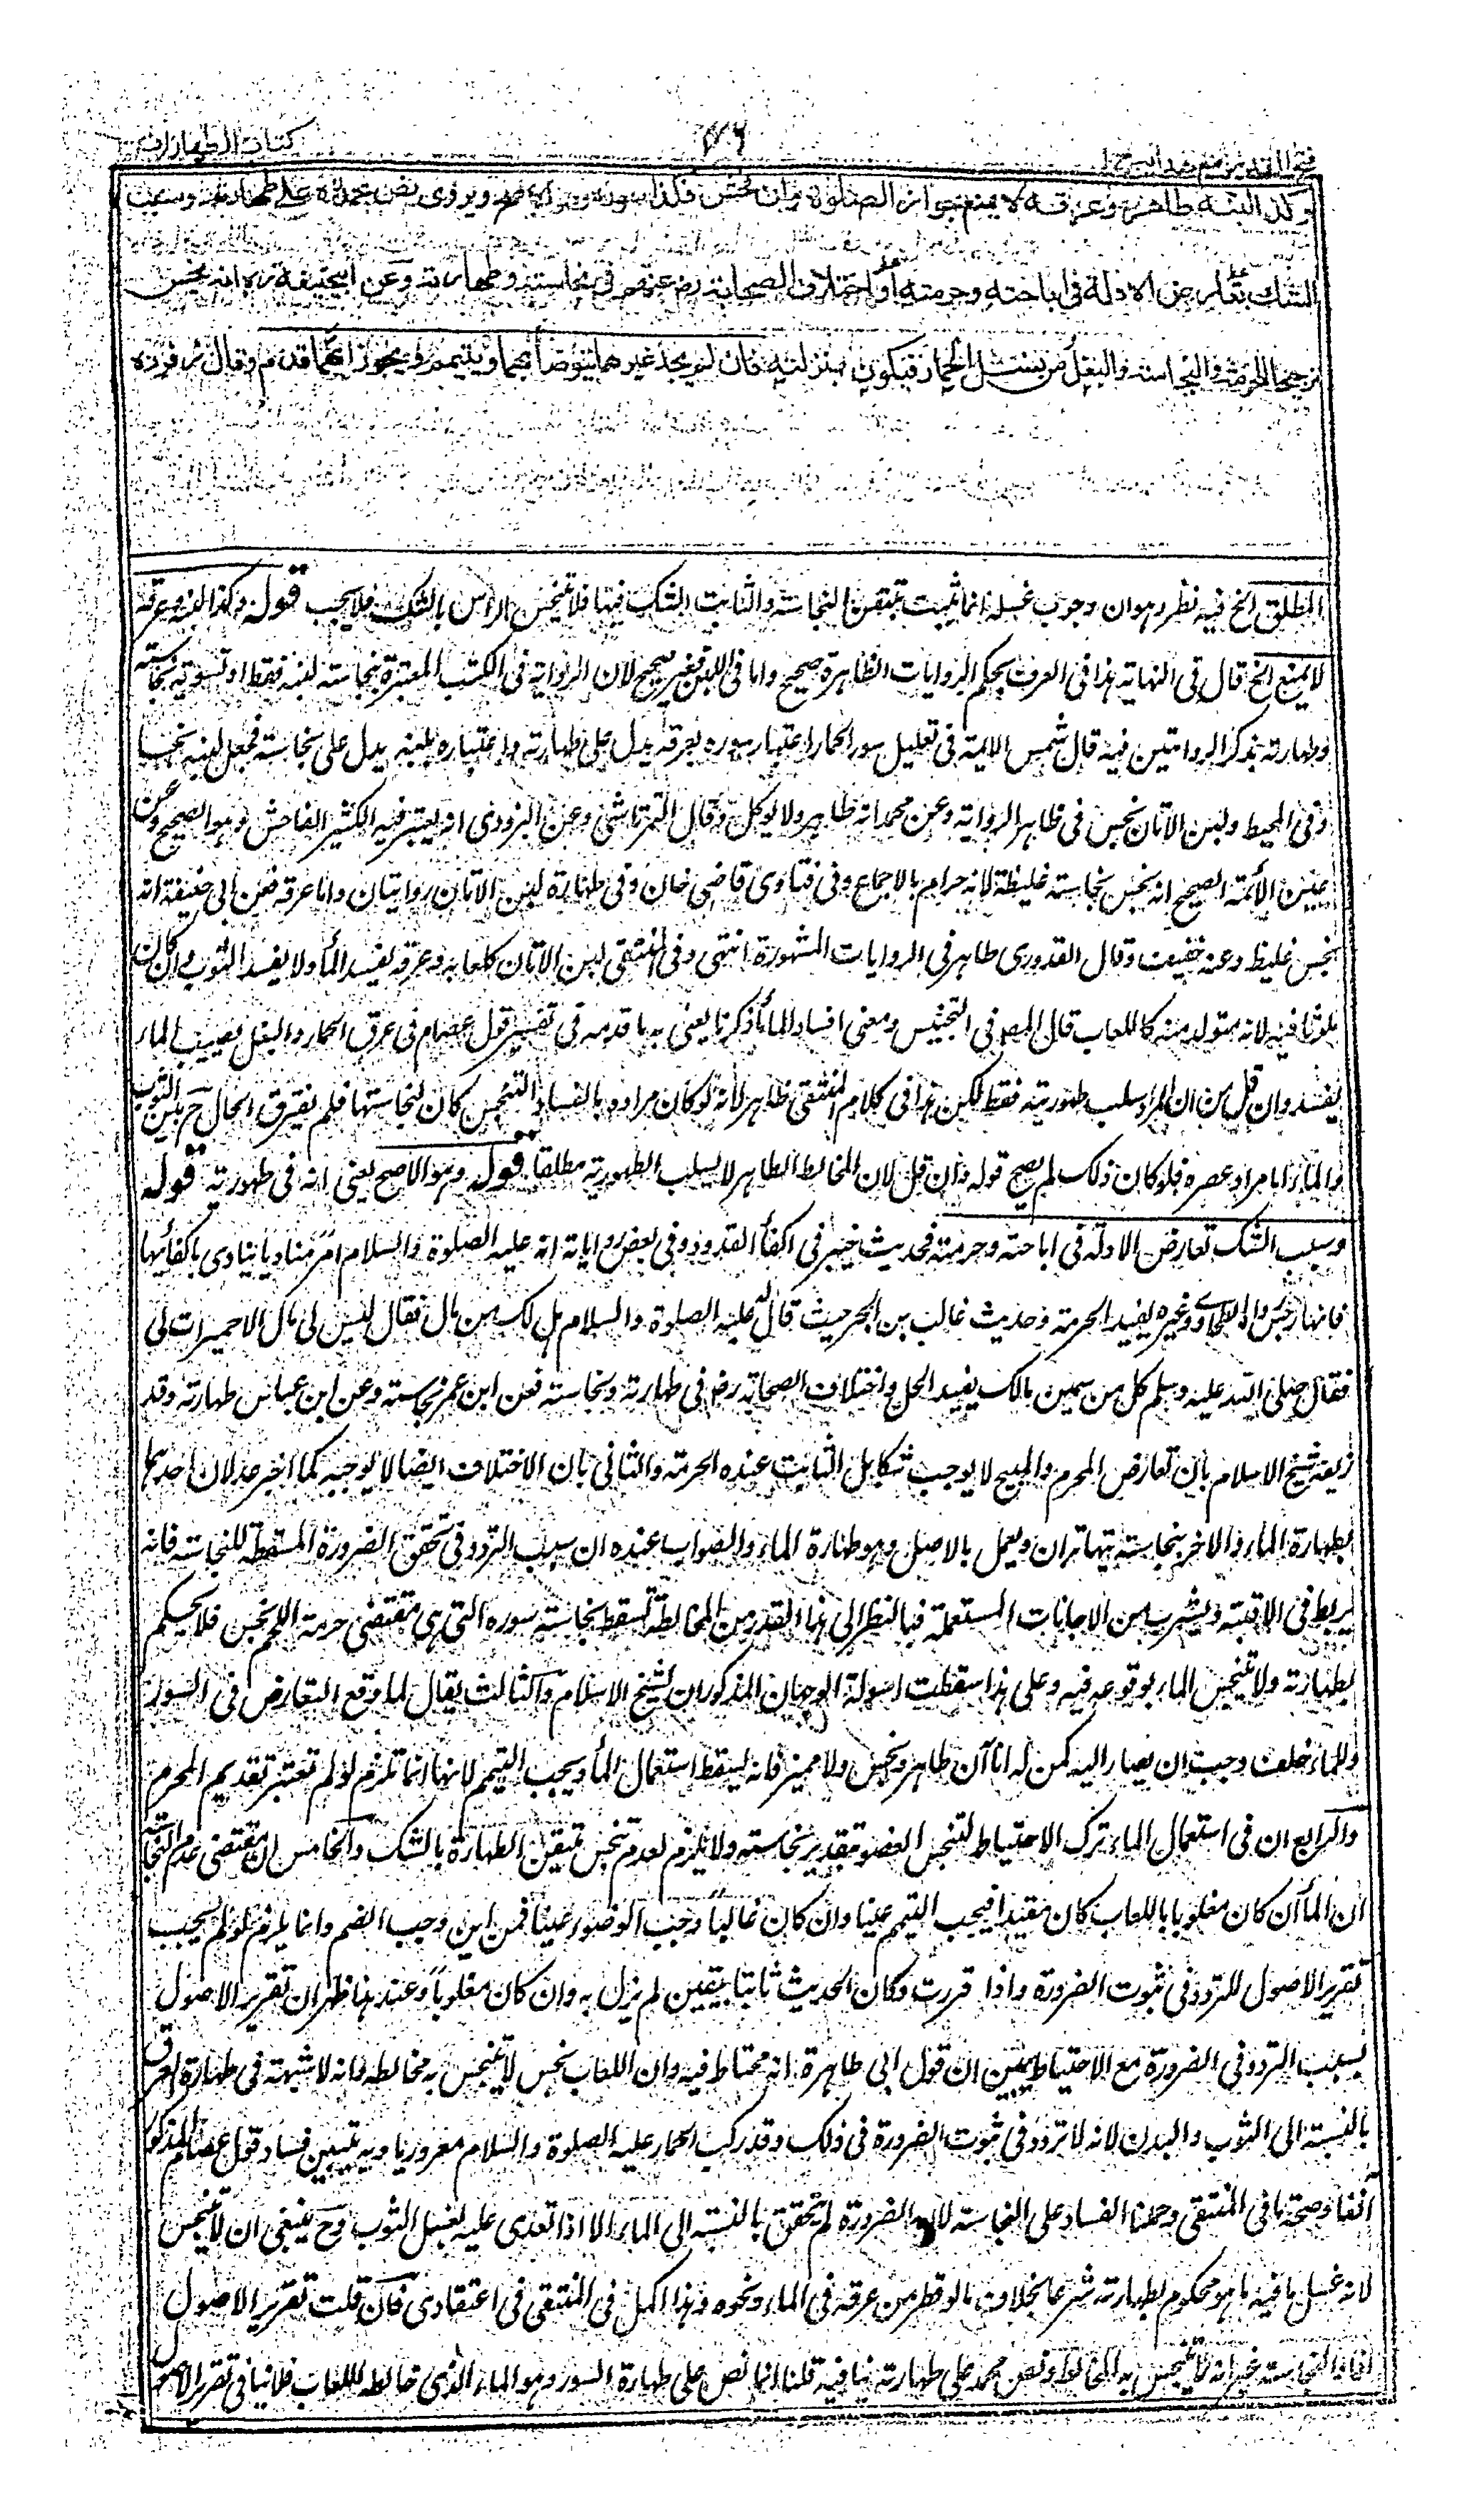 كتاب الطهارات
وكذا لبنه طاهر وعرقه لا يمنع جواز الصلوة وان فحش فكذا سوره وهو الاصح ويروى نص محمد ره على طهارته وسبب
الشك تعارض الادلة فى اباحته وحرمته او اختلاف الصحابة رض عنهم فى نجاسته وطهارته وعن ابيحنيفة ره انه نجس
ترجيحا للحرمة والنجاسة والبغل من نسل الحمار فيكون بمنزلته فان لم يجد غيرهما يتوضأ بهما ويتيمم ويجوز ايهما قدم وقال زفر ره
المطلق الخ فيه نظر وهوان وجوب غسله انما يثبت بتيقن النجاسة والثابت الشك فيها فلا يتنجس الراس بالشك فلا يجب قوله وكذا لبنه وعرقه
لا يمنع الخ قال فى النهاية هذا فى العرق بحكم الروايات الظاهرة صحيح واما فى اللبن فغير صحيح لان الرواية فى الكتب المعتبرة بنجاسته لبنه فقط او تسوية نجاسته
وطهارته بذكر الروايتين فيه قال شمس الايمة فى تعليل سور الحمار اعتبار سوره بعرقه يدل على طهارته واعتباره بلبنه يدل على نجاسته فجعل لبنه نجسا
وفى المحيط ولبن الاتان نجس فى ظاهر الرواية وعن محمد انه طاهر ولا يوكل وقال التمرتاشى وعن البزودى انه يعتبر فيه الكثير الفاحش وهو الصحيح وعن
عين الأئمة الصحيح انه نجس نجاسته غليظة لانه حرام بالاجماع وفى فتاوى قاضى خان وفى طهارة لبن الاتان روايتان واما عرقه فعن ابى حنيفة انه
نجس غليظ وعنه خفيف وقال القدورى طاهر فى الروايات المشهورة انتهى وفى المنتقى لبن الاتان كلعابه وعرقه يفسد المأ ولا يفسد الثوب وان كان
مغموسا فيه لانه متولد منه كاللعاب قال المص فى التجنيس ومعنى افساد المأ ما ذكرنا يعنى به ما قدمه فى تفسير قول عصام فى عرق الحمار والبغل يصيب الماء
يفسد وان قل من ان المراد سلب طهوريته فقط لكن هذا فى كلام المنتقى ظاهر لانه لو كان مراده بالفساد التنجس كان لنجاستها فلم يفترق الحال ح بين الثوب
والماء اما مراد عصره فلو كان ذلك لم يصح قوله وان قل لان المخالط الطاهر لا يسلب الطهورية مطلقا قوله وهو الاصح يعنى انه فى طهوريته قوله
وسبب الشك تعارض الادلة فى اباحته وحرمته فحديث خيبر فى اكفأ القدور وفى بعض رواياته انه عليه الصلوة والسلام امر مناديا ينادى باكفائها
فانها رجس رواه الطحاوى وغيره يفيد الحرمة وحديث غالب بن ابجر حيث قال له عليه الصلوة والسلام هل لك من مال فقال ليس لى مال الا حميرات لى
فقال صلى الله عليه وسلم كل من سمين مالك يفيد الحل واختلاف الصحابة رض فى طهارته ونجاسته فعن ابن عمر نجاسته وعن ابن عباس طهارته وقد
زيفه شيخ الاسلام بان تعارض المحرم والمبيح لا يوجب شكا بل الثابت عنده الحرمة والثانى بان الاختلاف ايضا لا يوجبه كما اخبر عدلان احدهما
بطهارة الماء والاخر بنجاسته يتهاتران ويعمل بالاصل وهو طهارة الماء والصواب عنده ان سبب التردد فى تحقق الضرورة المسقطة للنجاسة فانه
يربط فى الافنية ويشرب من الاجانات المستعملة فبالنظر الى هذا القدر من المخالطة تسقط نجاسته سوره التى هى مقتضى حرمة اللحم النجس فلا يحكم
بطهارته ولا يتنجس الماء بوقوعه فيه وعلى هذا سقطت اسولة الوجهان المذكوران لشيخ الاسلام والثالث يقال لما وقع التعارض فى السور
وللماء خلف وجب ان يصار اليه كمن له اناآن طاهر ونجس ولا مميز فانه يسقط استعمال المأ ويجب التيمم لانها انما تلزم لو لم تعتبر تقديم المحرم
والرابع ان فى استعمال الماء ترك الاحتياط لتنجس العضو بتقدير نجاسته ولا يلزم لعدم تنجس متيقن الطهارة بالشك والخامس ان مقتضى عدم النجاسة
ان المأ ان كان مغلوبا باللعاب كان مقيدا فيجب التيمم عينا وان كان غالبا وجب الوضوء عينا فمن اين وجب الضم وانما يلزم لو لم يجب
تقرير الاصول للتردد فى ثبوت الضرورة واذا قررت وكان الحدث ثابتا بيقين لم يزل به وان كان مغلوبا وعند هذا ظهر ان تقرير الاصول
بسبب التردد فى الضرورة مع الاحتياط يبين ان قول ابى طاهرة انه محتاط فيه وان اللعاب نجس لا يتنجس به مخالطه وانه لا شبهة فى طهارة العرق
بالنسبة الى الثوب والبدن لانه لا تردد فى ثبوت الضرورة فى ذلك وقد ركب الحمار عليه الصلوة والسلام معروريا وبه يتبين فساد قول عصام المذكور
آنفا وصحة ما فى المنتقى وحملنا الفساد على النجاسة لان الضرورة لم تتحقق بالنسبة الى الماء الا اذا تعدى عليه لغسل الثوب وح ينبغى ان لا ينجس
لانه غسل ما فيه ما هو محكوم بطهارته شرعا بخلاف ما لو قطر من عرقه فى الماء ونحوه وهذا اكمل فى المنتقى فى اعتقادى فان قلت تقرير الاصول
افاد النجاسة غير انه لا يتنجس به المخالط ونص محمد على طهارته ينافيه قلنا انما نص على طهارة السور وهو الماء الذى خالطه اللعاب فلا ينافى تقرير الاصول